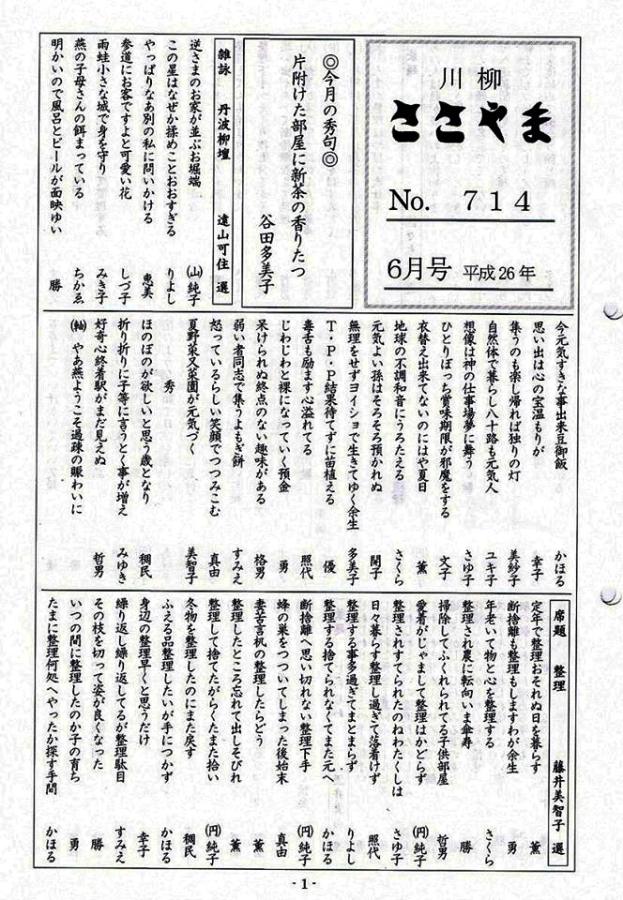 川柳
ささやま
No. 714
6月号 平成26年
◎今月の秀句◎
片附けた部屋に新茶の香りたつ
谷田多美子
雑詠 丹波柳壇 遠山可住 選
逆さまのお家が並ぶお堀端 (山)純子
この星はなぜか揉めことおおすぎる りよし
やっぱりなあ別の私に問いかける 恵美
参道にお客ですよと可愛い花 しづ子
雨蛙小さな城で身を守り みき子
燕の子母さんの餌まっている ちかゑ
明かいので風呂とビールが面映ゆい 勝
今元気すきな事出来豆御飯 かほる
思い出は心の宝温もりが 幸子
集うのも楽し帰れば独りの灯 美紗子
自然体で暮らし八十路も元気人 ユキ子
想像は神の仕事場夢に舞う さゆ子
ひとりぼっち賞味期限が邪魔をする 文子
衣替え出来てないのにはや夏日 薫
地球の不調和音にうろたえる さくら
元気よい孫はそろそろ預かれぬ 開子
無理をせずヨイショで生きてゆく余生 多美子
T・P・P結果待てずに苗植える 優
毒舌も励ます心溢れてる 照代
じわじわと裸になっていく預金 勇
呆けられぬ終点のない趣味がある 格男
弱い者同志で集うよもぎ餅 すみえ
怒っているらしい笑顔でつつみこむ 真由
夏野菜又菜園が元気づく 美智子
秀
ほのぼのが欲しいと思う歳となり 稠民
折り折りに子等に言うとく事が増え みゆき
好奇心終着駅がまだ見えぬ 哲男
(軸) やあ燕ようこそ過疎の賑わいに
席題 整理 藤井美智子 選
定年で整理おそれぬ日を暮らす 薫
断捨離も整理もしますわが余生 勇
年老いて物と心を整理する さくら
整理され農に転向いま傘寿 勝
掃除してふくれられてる子供部屋 哲男
愛着がじゃまして整理はかどらず (円)純子
整理されすてられたのねわたくしは さゆ子
日々暮らす整理し過ぎて落着けず 照代
整理する事多過ぎてまとまらず りよし
整理する捨てられなくてまた元へ かほる
断捨離へ思い切れない整理下手 (円)純子
蜂の巣をつついてしまった後始末 真由
妻苦言机の整理したらどう 薫
整理したところ忘れて出しそびれ 薫
整理して捨てたがらくたまた拾い (円)純子
冬物を整理したのにまた戻す 稠民
ふえる品整理したいが手につかず かほる
身辺の整理早くと思うだけ 幸子
繰り返し繰り返してるが整理駄目 すみえ
その枝を切って姿が良くなった 勝
いつの間に整理したのか子の育ち 勇
たまに整理何処へやったか探す手間 かほる
- 1 -